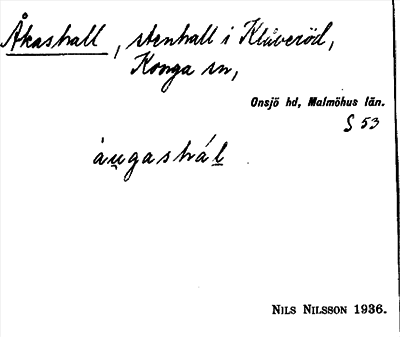 Åkashall, stenhall i Klåveröd,
Konga sn,
Onsjö hd, Malmöhus län.
S 53
NILS NILSSON 1936.